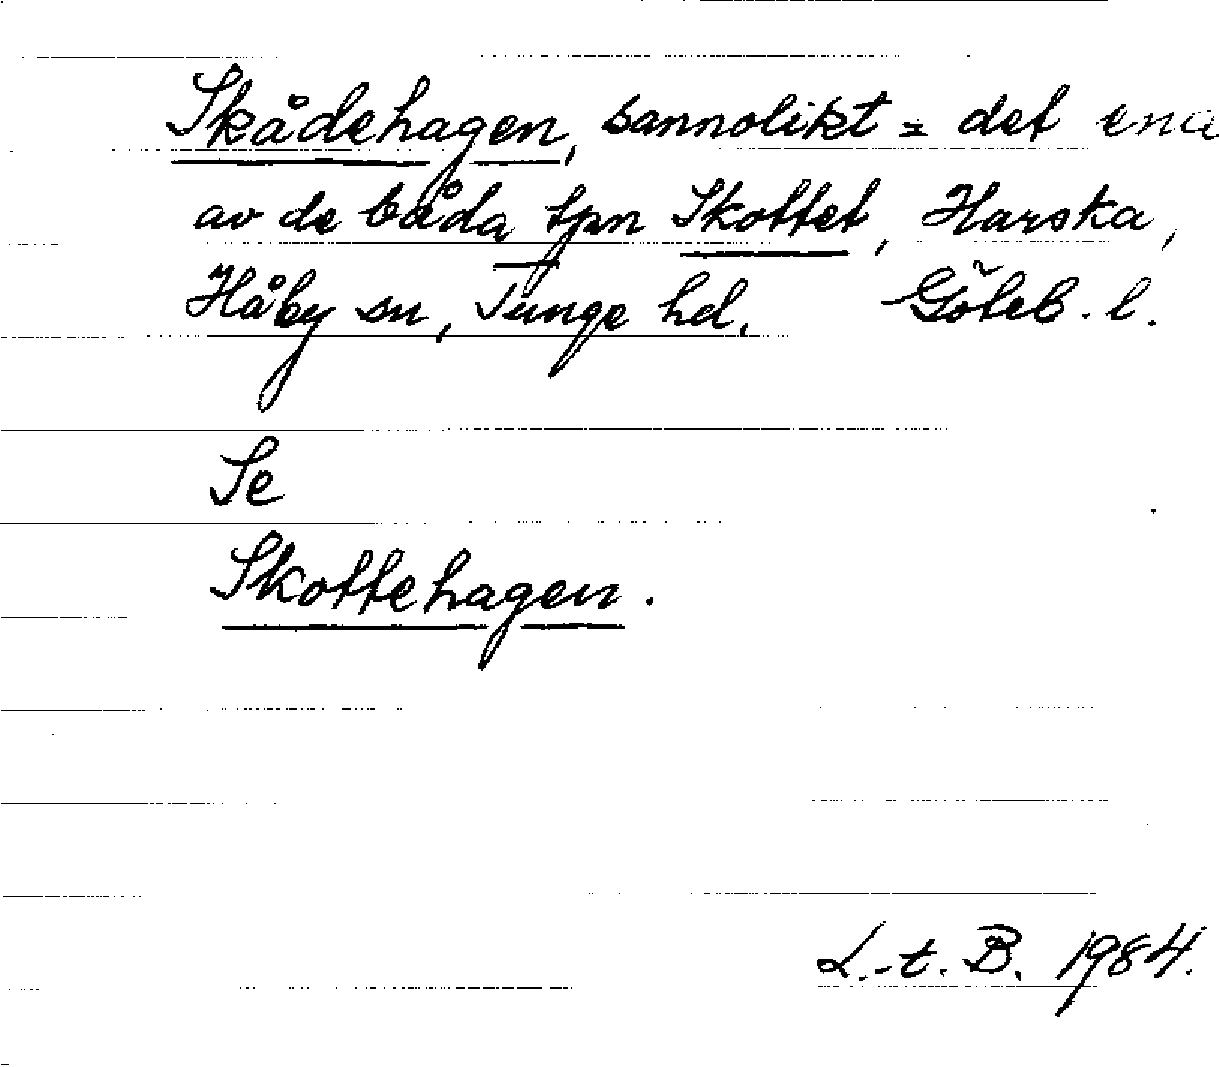 Skådehagen, sannolikt = det ena
av de båda tpn Skottet, Harska,
Håby sn, Tunge hd. Göteb. l.
Se
Skottehagen.
L.-t. B. 1984.